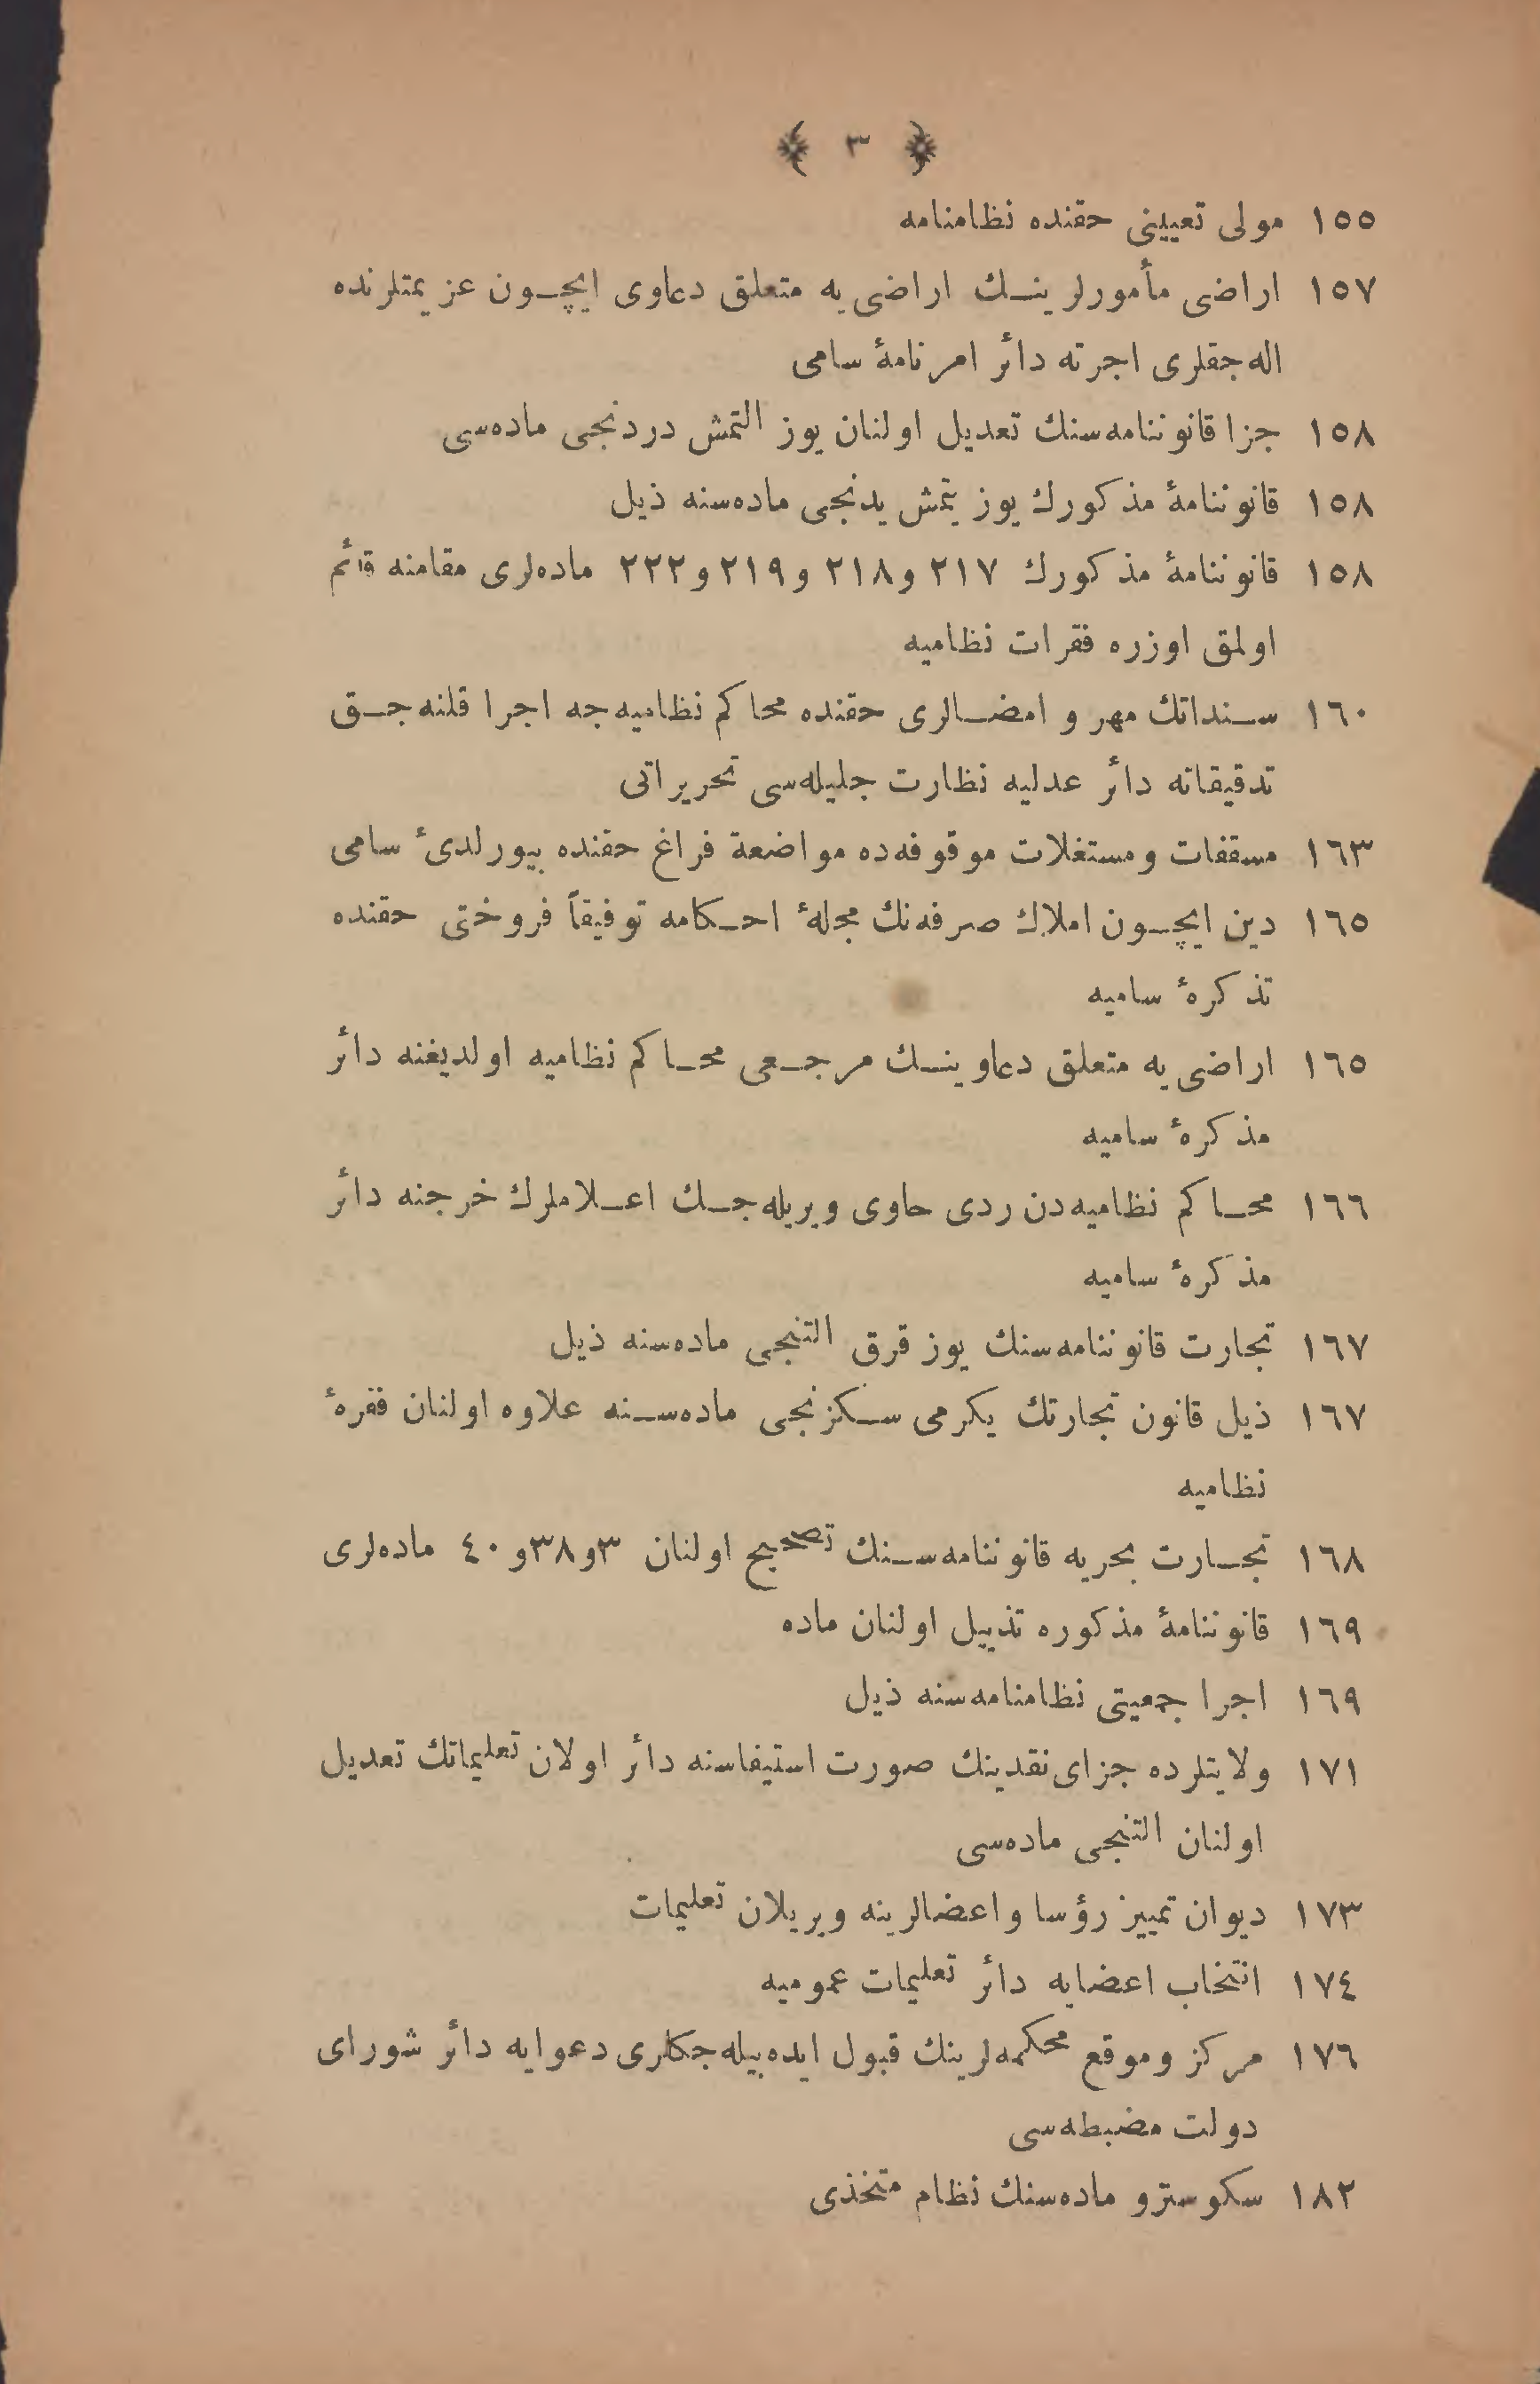 ﴿ ٣ ﴾
١٥٥ مولى تعيينى حقنده نظامنامه
١٥٧ اراضى مأمورلرينـك اراضى‌يه متعلق دعاوى ايچـون عزيمتلرنده
اله‌جقلرى اجرته دائر امرنامهٔ سامى
١٥٨ جزا قانوننامه‌سنك تعديل اولنان يوز التمش دردنجى ماده‌سى
١٥٨ قانوننامهٔ مذكورك يوز يتمش يدنجى ماده‌سنه ذيل
١٥٨ قانوننامهٔ مذكورك ٢١٧ و٢١٨ و٢١٩ و٢٢٢ ماده‌لرى مقامنه قائم
اولمق اوزره فقرات نظاميه
١٦٠ سـنداتك مهر و امضـالرى حقنده محاكم نظاميه‌جه اجرا قلنه‌جـق
تدقيقاته دائر عدليه نظارت جليله‌سى تحريراتى
١٦٣ مسقفات ومستغلات موقوفه‌ده مواضعة فراغ حقنده بيورلدىٔ سامى
١٦٥ دين ايچـون املاك صرفه‌نك مجلهٔ احـكامه توفيقاً فروختى حقنده
تذكرهٔ ساميه
١٦٥ اراضى‌يه متعلق دعاوينـك مرجـعى محـاكم نظاميه اولديغنه دائر
مذكرهٔ ساميه
١٦٦ محـاكم نظاميه‌دن ردى حاوى ويريله‌جـك اعـلاملرك خرجنه دائر
مذكرهٔ ساميه
١٦٧ تجارت قانوننامه‌سنك يوز قرق التنجى ماده‌سنه ذيل
١٦٧ ذيل قانون تجارتك يكرمى سـكزنجى ماده‌سـنه علاوه اولنان فقرهٔ
نظاميه
١٦٨ تجـارت بحريه قانوننامه‌سـنك تصحيح اولنان ٣و٣٨و٤٠ ماده‌لرى
١٦٩ قانوننامهٔ مذكوره تذييل اولنان ماده
١٦٩ اجرا جمعيتى نظامنامه‌سنه ذيل
١٧١ ولايتلرده جزاى‌نقدينك صورت استيفاسنه دائر اولان تعليماتك تعديل
اولنان التنجى ماده‌سى
١٧٣ ديوان تمييز رؤسا واعضالرينه ويريلان تعليمات
١٧٤ انتخاب اعضايه دائر تعليمات عموميه
١٧٦ مركز وموقع محكمه‌لرينك قبول ايده‌بيله‌جكلرى دعوايه دائر شوراى
دولت مضبطه‌سى
١٨٢ سكوسترو ماده‌سنك نظام متخذى